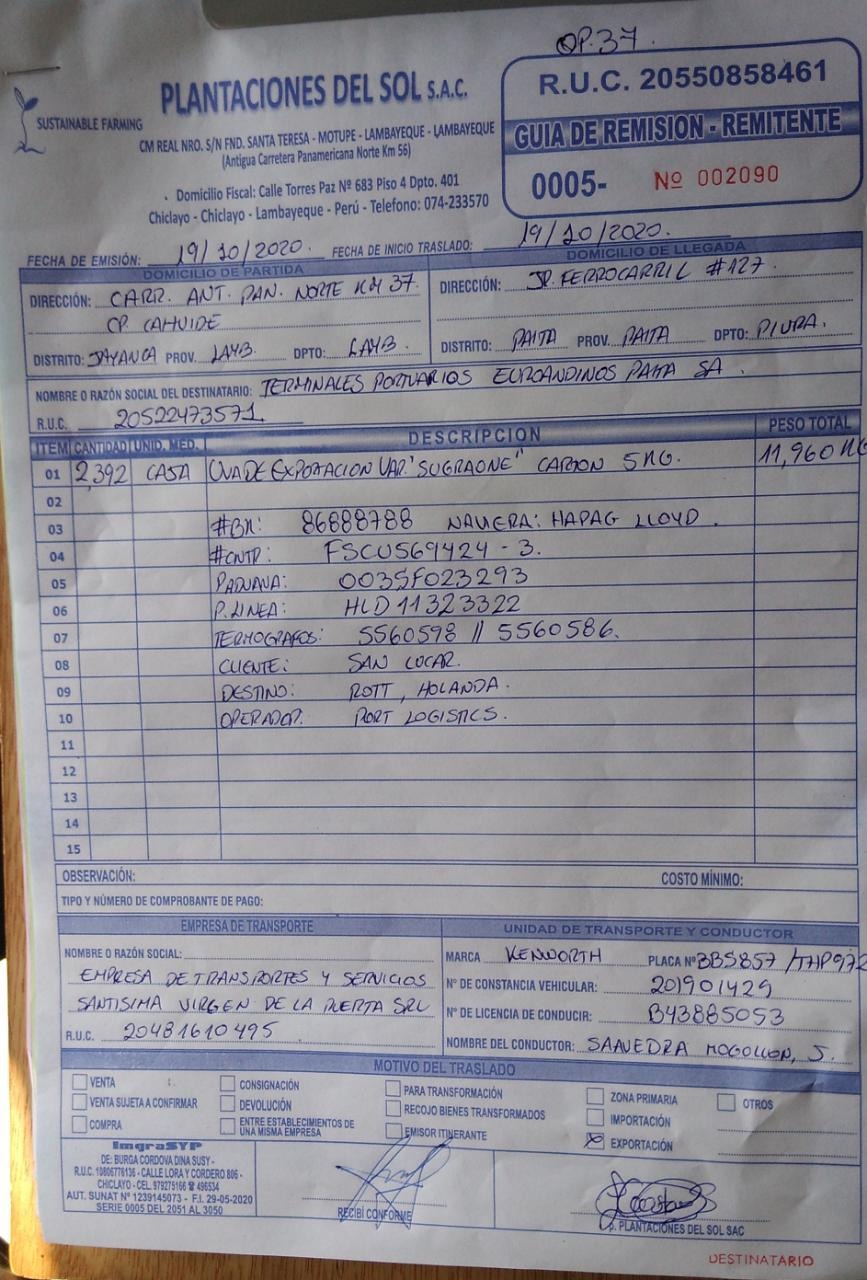 OP. 37.
PLANTACIONES DEL SOL S.A.C.
SUSTAINABLE FARMING
CM REAL NRO. S/N FND. SANTA TERESA - MOTUPE - LAMBAYEQUE - LAMBAYEQUE
(Antigua Carretera Panamericana Norte Km 56)
Domicilio Fiscal: Calle Torres Paz Nº 683 Piso 4 Dpto. 401
Chiclayo - Chiclayo - Lambayeque - Perú - Telefono: 074-233570
R.U.C. 20550858461
GUIA DE REMISION - REMITENTE
0005- Nº 002090
FECHA DE EMISIÓN: 19/10/2020. FECHA DE INICIO TRASLADO: 19/10/2020.
DOMICILIO DE PARTIDA
DIRECCIÓN: CARR. ANT. PAN. NORTE KM 37.
CP. CAHUIDE
DISTRITO: JAYANCA PROV. LAMB. DPTO: LAMB.
DOMICILIO DE LLEGADA
DIRECCIÓN: JR. FERROCARRIL #127.
DISTRITO: PAITA PROV. PAITA DPTO: PIURA.
NOMBRE O RAZÓN SOCIAL DEL DESTINATARIO: TERMINALES PORTUARIOS EUROANDINOS PAITA SA.
R.U.C. 20522473571
ITEM CANTIDAD UNID. MED. DESCRIPCION PESO TOTAL
01 2,392 CAJA UVA DE EXPORTACION VAR. "SUGRAONE" CARTON 5 KG. 11,960 KG
02
03 #BK: 86888788 NAVIERA: HAPAG LLOYD.
04 #CNTR: FSCU569424-3.
05 P.ADUANA: 003SF023293
06 P.LINEA: HLD11323322
07 TERMOGRAFOS: 5560598 // 5560586.
08 CLIENTE: SAN LUCAR.
09 DESTINO: ROTT, HOLANDA.
10 OPERADOR: PORT LOGISTICS.
11
12
13
14
15
OBSERVACIÓN: COSTO MÍNIMO:
TIPO Y NÚMERO DE COMPROBANTE DE PAGO:
EMPRESA DE TRANSPORTE
NOMBRE O RAZÓN SOCIAL:
EMPRESA DE TRANSPORTES Y SERVICIOS
SANTISIMA VIRGEN DE LA PUERTA SRL
R.U.C. 20481610495
UNIDAD DE TRANSPORTE Y CONDUCTOR
MARCA KENWORTH PLACA Nº BBS857 / THP972
Nº DE CONSTANCIA VEHICULAR: 201901429
Nº DE LICENCIA DE CONDUCIR: B43885053
NOMBRE DEL CONDUCTOR: SAAVEDRA MOGOLLON, J.
MOTIVO DEL TRASLADO
VENTA
VENTA SUJETA A CONFIRMAR
COMPRA
CONSIGNACIÓN
DEVOLUCIÓN
ENTRE ESTABLECIMIENTOS DE
UNA MISMA EMPRESA
PARA TRANSFORMACIÓN
RECOJO BIENES TRANSFORMADOS
EMISOR ITINERANTE
ZONA PRIMARIA
IMPORTACIÓN
EXPORTACIÓN
OTROS
ImgraSYP
DE: BURGA CORDOVA DINA SUSY -
R.U.C. 10806778136 - CALLE LORA Y CORDERO 806 -
CHICLAYO - CEL. 979275166 ☎ 496534
AUT. SUNAT Nº 1239145073 - F.I. 29-05-2020
SERIE 0005 DEL 2051 AL 3050
RECIBÍ CONFORME
p. PLANTACIONES DEL SOL SAC
DESTINATARIO